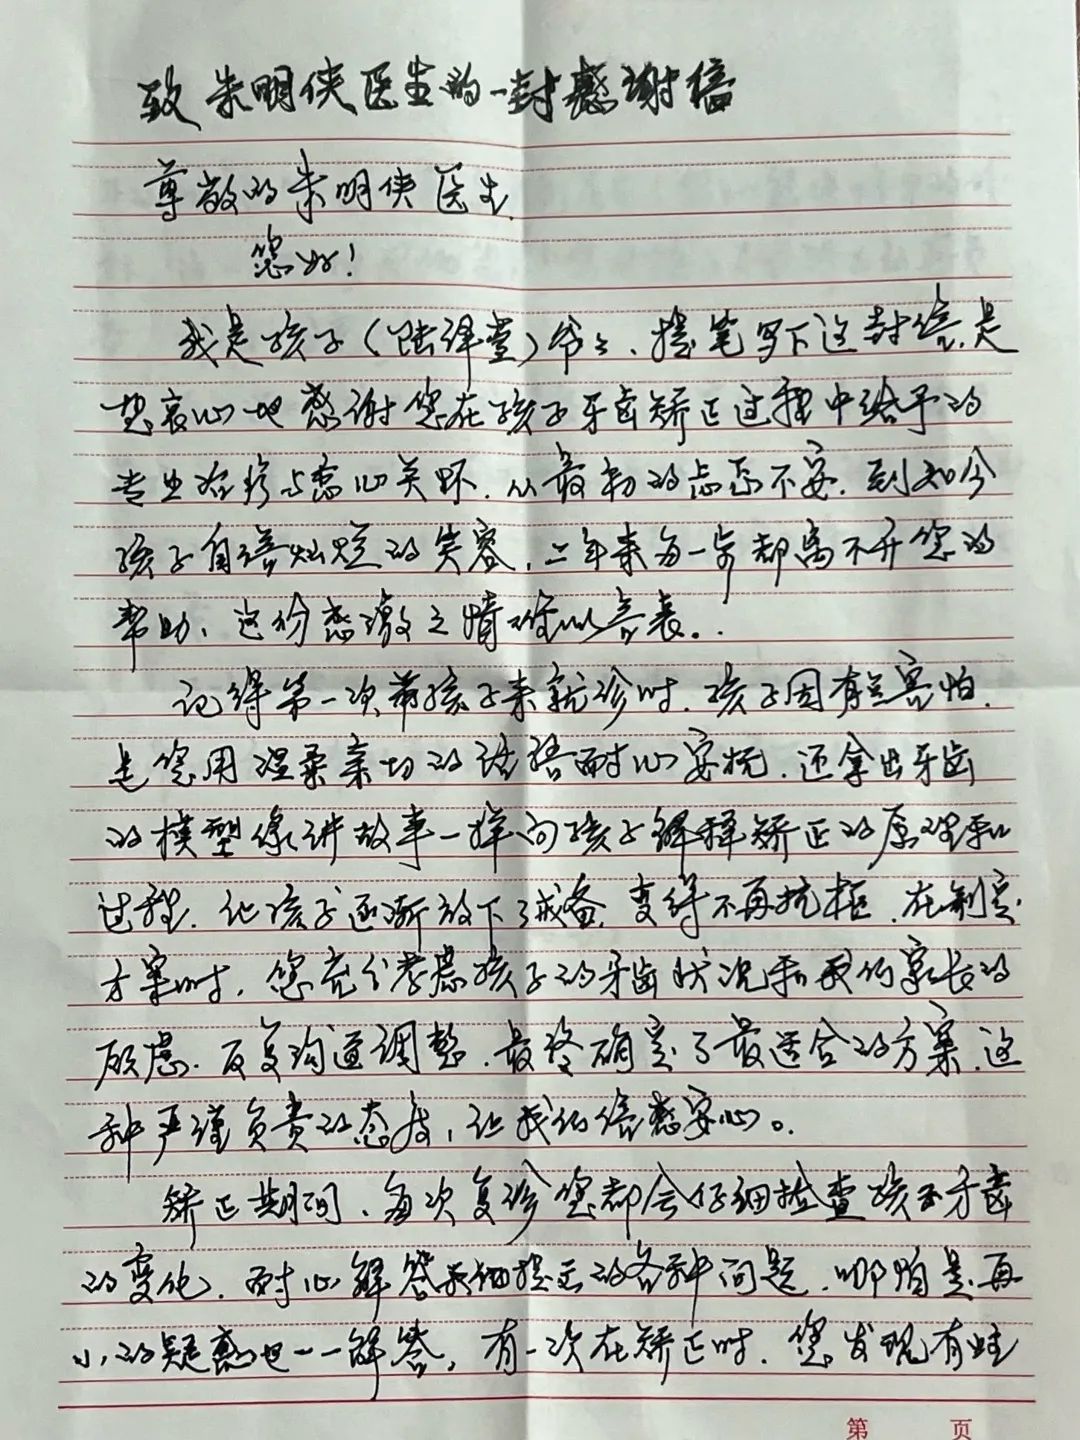 致朱明侠医生的一封感谢信
尊敬的朱明侠医生
您好!
我是孩子(陆泽萱)爷爷、提笔写下这封信,是
想衷心地感谢您在孩子牙齿矫正过程中给予的
专业治疗与悉心关怀.从最初的忐忑不安.到如今
孩子自信灿烂的笑容,二年来每一步都离不开您的
帮助、这份感激之情难以言表。
记得第一次带孩子来就诊时.孩子因有些害怕.
是您用温柔亲切的话语耐心安抚.还拿出牙齿
的模型像讲故事一样向孩子解释矫正的原理和
过程.让孩子逐渐放下了戒备,变得不再抗拒.在制定
方案时,您充分考虑孩子的牙齿状况和我们家长的
顾虑.反复沟通调整.最终确定了最适合的方案.这
种严谨负责的态度,让我们倍感安心。
矫正期间、每次复诊您都会仔细检查孩子牙齿
的变化、耐心解答我们提出的各种问题.哪怕是再
小的疑惑也一一解答,有一次在矫正时.您发现有蛀
第 页